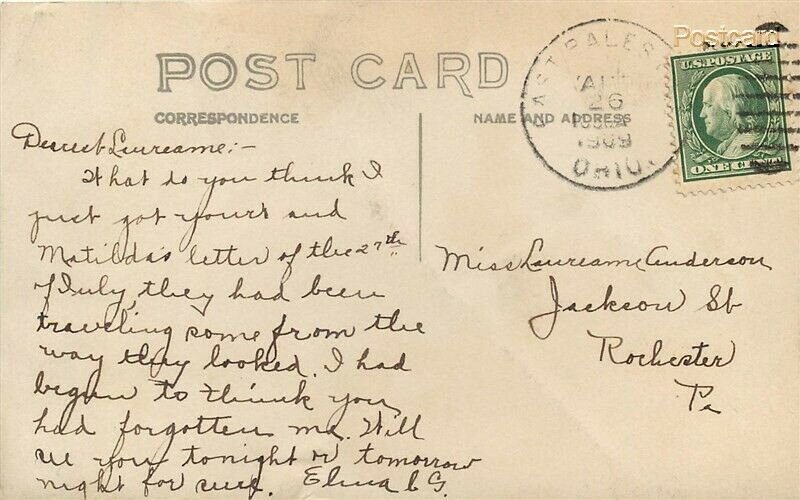 Postcard
POST CARD
CORRESPONDENCE
NAME AND ADDRESS
EAST PALEST
26
1909
OHIO.
U.S. POSTAGE
ONE CENT
Dearest Laureame:-
What do you think I
just got yours and
Matilda's letter of the 27th
of July, they had been
traveling some from the
way they looked. I had
begun to think you
had forgotten me. Will
see you tonight or tomorrow
night for sure. G.
Miss Laureame Anderson
Jackson St
Rochester
Pa